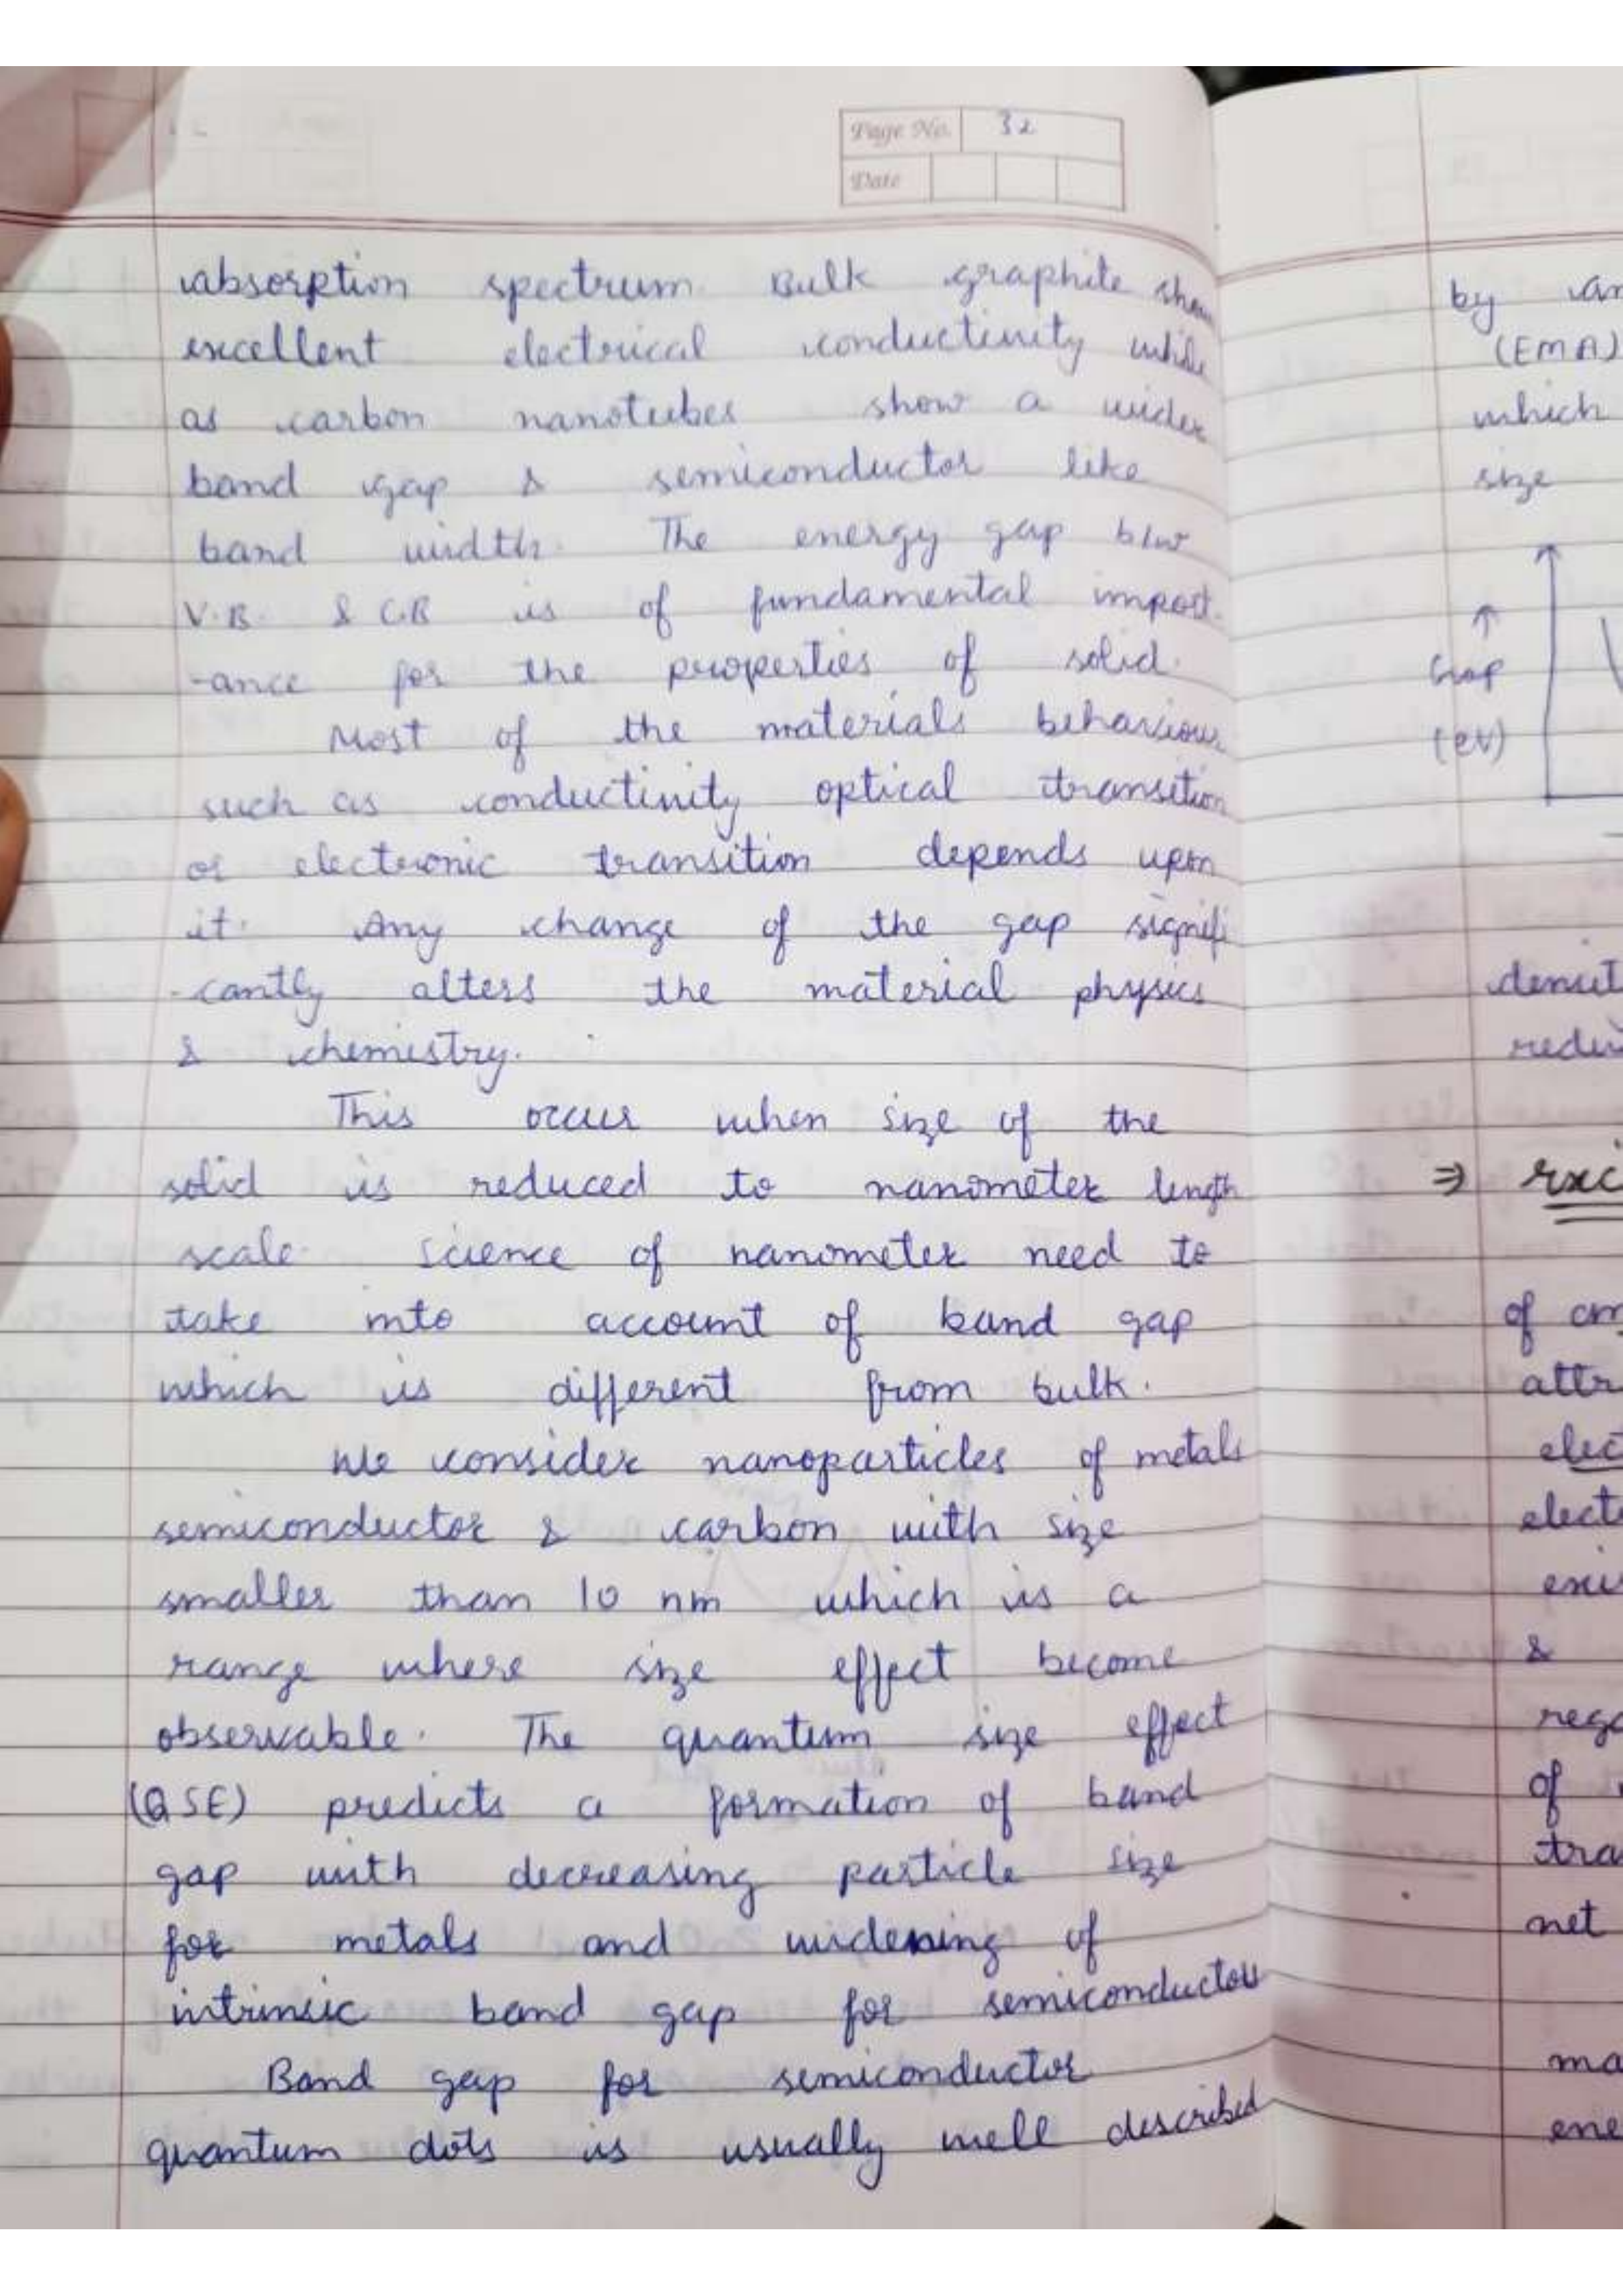 Page No. 32
Date
absorption spectrum. Bulk graphite show
excellent electrical conductivity while
as carbon nanotubes show a wider
band gap & semiconductor like
band width. The energy gap b/w
V.B. & C.B is of fundamental import.
-ance for the properties of solid.
Most of the materials behaviour
such as conductivity optical transition
or electronic transition depends upon
it. Any change of the gap signifi
-cantly alters the material physics
& chemistry.
This occur when size of the
solid is reduced to nanometer length
scale. Science of nanometer need to
take into account of band gap
which is different from bulk.
We consider nanoparticles of metals
semiconductor & carbon with size
smaller than 10 nm which is a
range where size effect become
observable. The quantum size effect
(QSE) predicts a formation of band
gap with decreasing particle size
for metals and widening of
intrinsic band gap for semiconductors
Band gap for semiconductor
quantum dots is usually well described
by
(EMA)
which
size
↑
Gap
(eV)
⇒
of
attr
elec
elect
&
of
tra
net
ma
ene